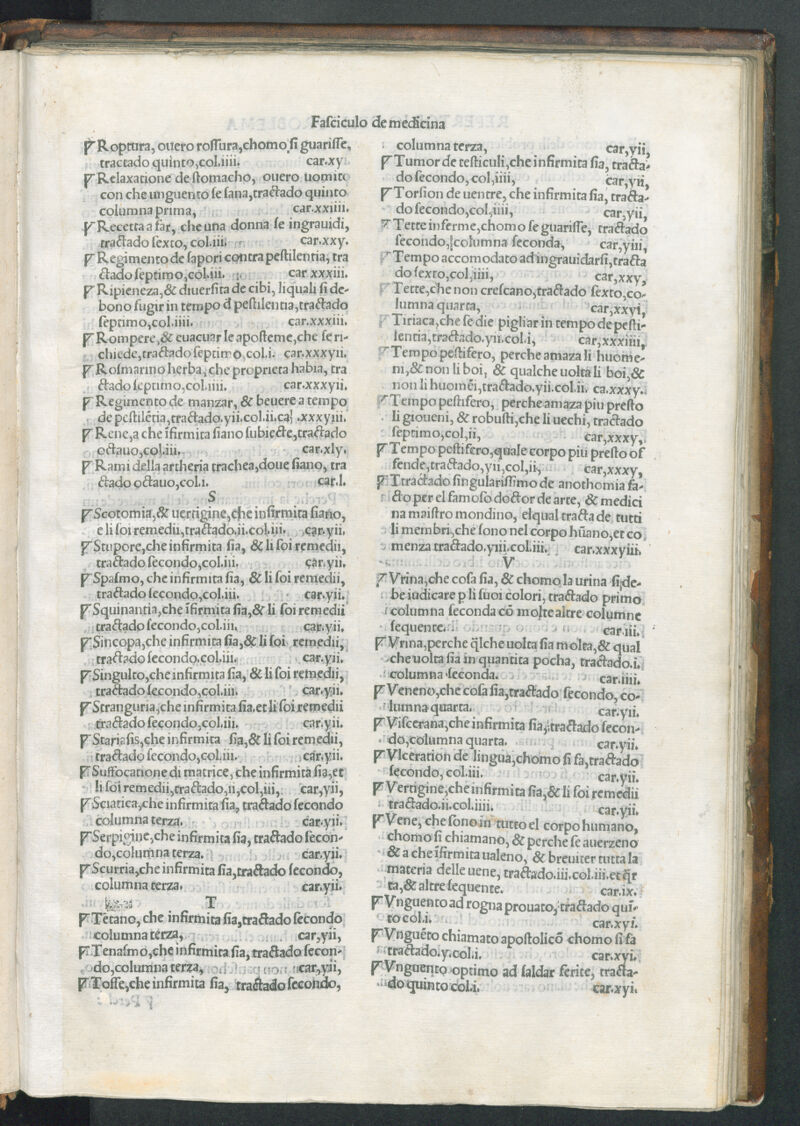 Faſciculo de medicina
Roptura, ouero roſſura,chomo ſi guariſſe,
tractado quinto,col.iiii. car.xy
Relaxatione de ſtomacho, ouero uomito
con che unguento ſe ſana,tractado quinto
columna prima, car.xxiiii.
Recetta a far, che una donna ſe ingrauidi,
tractado ſexto, col.iii. car.xxy.
Regimento de ſapori contra peſtilentia, tra
ctado ſeptimo,col.iii. car xxxiii.
Ripieneza,& diuerſita de cibi, liquali ſi de-
bono fugir in tempo d peſtilentia,tractado
ſeptimo,col.iiii. car.xxxiii.
Rompere,& euacuar le apoſteme,che ſe ri-
chiede,tractado ſeptimo,col.i. car.xxxyii.
Roſmarino herba, che proprieta habia, tra
ctado ſeptimo,col.iiii. car.xxxyii.
Regimento de manzar, & beuere a tempo
de peſtilētia,tractado.yii.col.ii.ca .xxxyiii.
Rene,a che īfirmita ſiano ſubiecte,tractado
octauo,col.iii. car.xly.
Rami della artheria trachea,doue ſiano, tra
ctado octauo,col.i. car.l.
S
Scotomia,& uertigine,che infirmita ſiano,
e li ſoi remedii,tractado.ii.col.iii. car.yii.
Stupore,che infirmita ſia, & li ſoi remedii,
tractado ſecondo,col.iii. car.yii.
Spaſmo, che infirmita ſia, & li ſoi remedii,
tractado ſecondo,col.iii. car.yii.
Squinantia,che īfirmita ſia,& li ſoi remedii
tractado ſecondo,col.iii. car.yii.
Sincopa,che infirmita ſia,& li ſoi remedii,
tractado ſecondo.col.iii. car.yii.
Singulto,che infirmita ſia, & li ſoi remedii,
tractado ſecondo,col.iii. car.yii.
Stranguria,che infirmita ſia.et li ſoi remedii
tractado ſecondo,col.iii. car.yii.
Stariaſis,che infirmita ſia,& li ſoi remedii,
tractado ſecondo,col.iii. car.yii.
Suffocatione di matrice, che infirmita ſia,et
li ſoi remedii,tractado,ii,col,iii, car,yii,
Sciatica,che infirmita ſia, tractado ſecondo
columna terza. car.yii.
Serpigine,che infirmita ſia, tractado ſecon-
do,columna terza. car.yii.
Scurria,che infirmita ſia,tractado ſecondo,
columna terza. car.yii.
T
Tetano, che infirmita ſia,tractado ſecondo
columna terza, car,yii,
Tenaſmo,che infirmita ſia, tractado ſecon-
do,columna terza, car,yii,
Toſſe,che infirmita ſia, tractado ſecondo,
columna terza, car,yii,
Tumor de teſticuli,che infirmita ſia, tracta-
do ſecondo, col,iiii, car,yii,
Torſion de uentre, che infirmita ſia, tracta-
do ſecondo,col,iiii, car,yii,
Tette inferme,chomo ſe guariſſe, tractado
ſecondo,columna ſeconda, car,yiii,
Tempo accomodato ad ingrauidarſi,tracta
do ſexto,col,iiii, car,xxy,
Tette,che non creſcano,tractado ſexto,co-
lumna quarta, car,xxyi,
Tiriaca,che ſe die pigliar in tempo de peſti-
lentia,tractado.yii.col.i, car,xxxiiii,
Tempo peſtifero, perche amaza li huome-
ni,& non li boi, & qualche uolta li boi,&
non li huomēi,tractado.yii.col.ii. ca.xxxy.
Tempo peſtifero, perche amaza piu preſto
li gioueni, & robuſti,che li uechi, tractado
ſeptimo,col,ii, car,xxxy,
Tempo peſtifero,quale corpo piu preſto of
fende,tractado,yii,col,ii, car,xxxy,
Ttractado ſingulariſſimo de anothomia fa-
cto per el famoſo doctor de arte, & medici
na maiſtro mondino, elqual tracta de tutti
li membri,che ſono nel corpo hūano,et co
menza tractado.yiii.col.iii. car.xxxyiii.
V
Vrina,che coſa ſia, & chomo la urina ſi de-
be iudicare p li ſuoi colori, tractado primo
columna ſeconda cō molte altre columne
ſequente. car.iii.
Vrina,perche q̄lche uolta ſia molta,& qual
che uolta ſia in quantita pocha, tractado.i.
columna ſeconda. car.iiii.
Veneno,che coſa ſia,tractado ſecondo, co-
lumna quarta. car.yii.
Viſcerana,che infirmita ſia,tractado ſecon-
do,columna quarta. car.yii.
Vlceration de lingua,chomo ſi fa,tractado
ſecondo, col.iii. car.yii.
Vertigine,che infirmita ſia,& li ſoi remedii
tractado.ii.col.iiii. car.yii.
Vene, che ſono in tutto el corpo humano,
chomo ſi chiamano, & perche ſe auerzeno
& a che īfirmita ualeno, & breuiter tutta la
materia delle uene, tractado.iii.col.iii.et q̄r
ta,& altre ſequente. car.ix.
Vnguento ad rogna prouato, tractado quī-
to col.i. car.xyi.
Vnguēto chiamato apoſtolicō chomo ſi fa
tractado.y.col.i. car.xyi.
Vnguento optimo ad ſaldar ferite, tracta-
do quinto col.i. car.xyi.